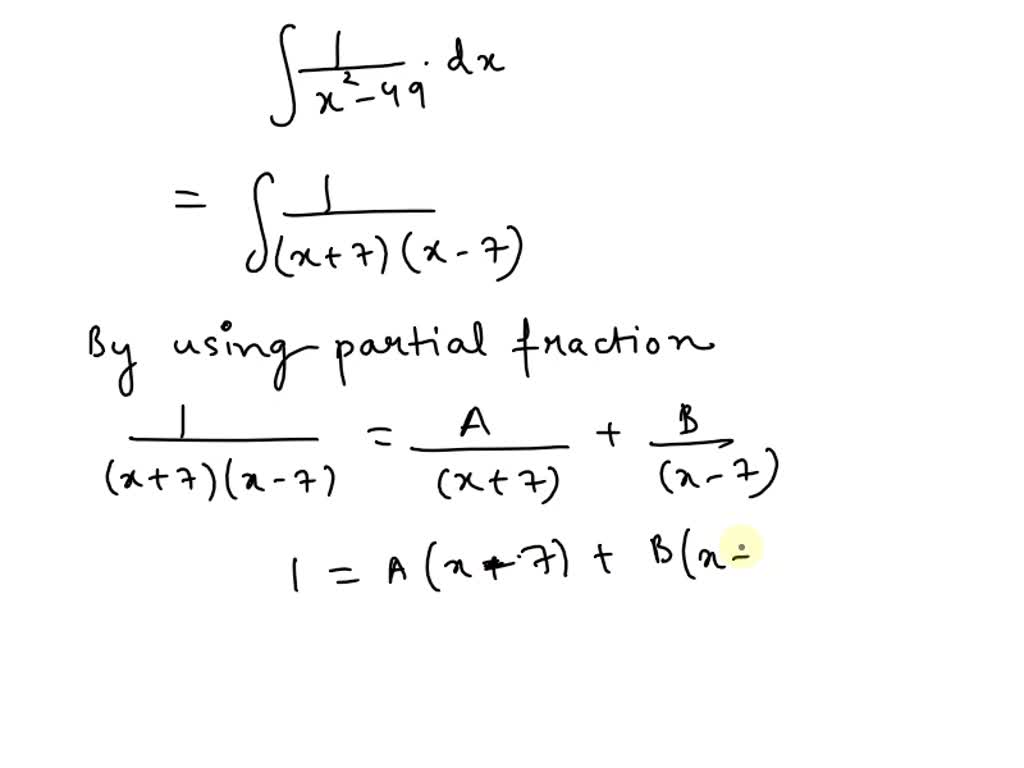 ∫ 1/(x² - 49) · dx
= ∫ 1/((x + 7)(x - 7))
By using partial fraction
1/((x + 7)(x - 7)) = A/(x + 7) + B/(x - 7)
1 = A(x - 7) + B(x -